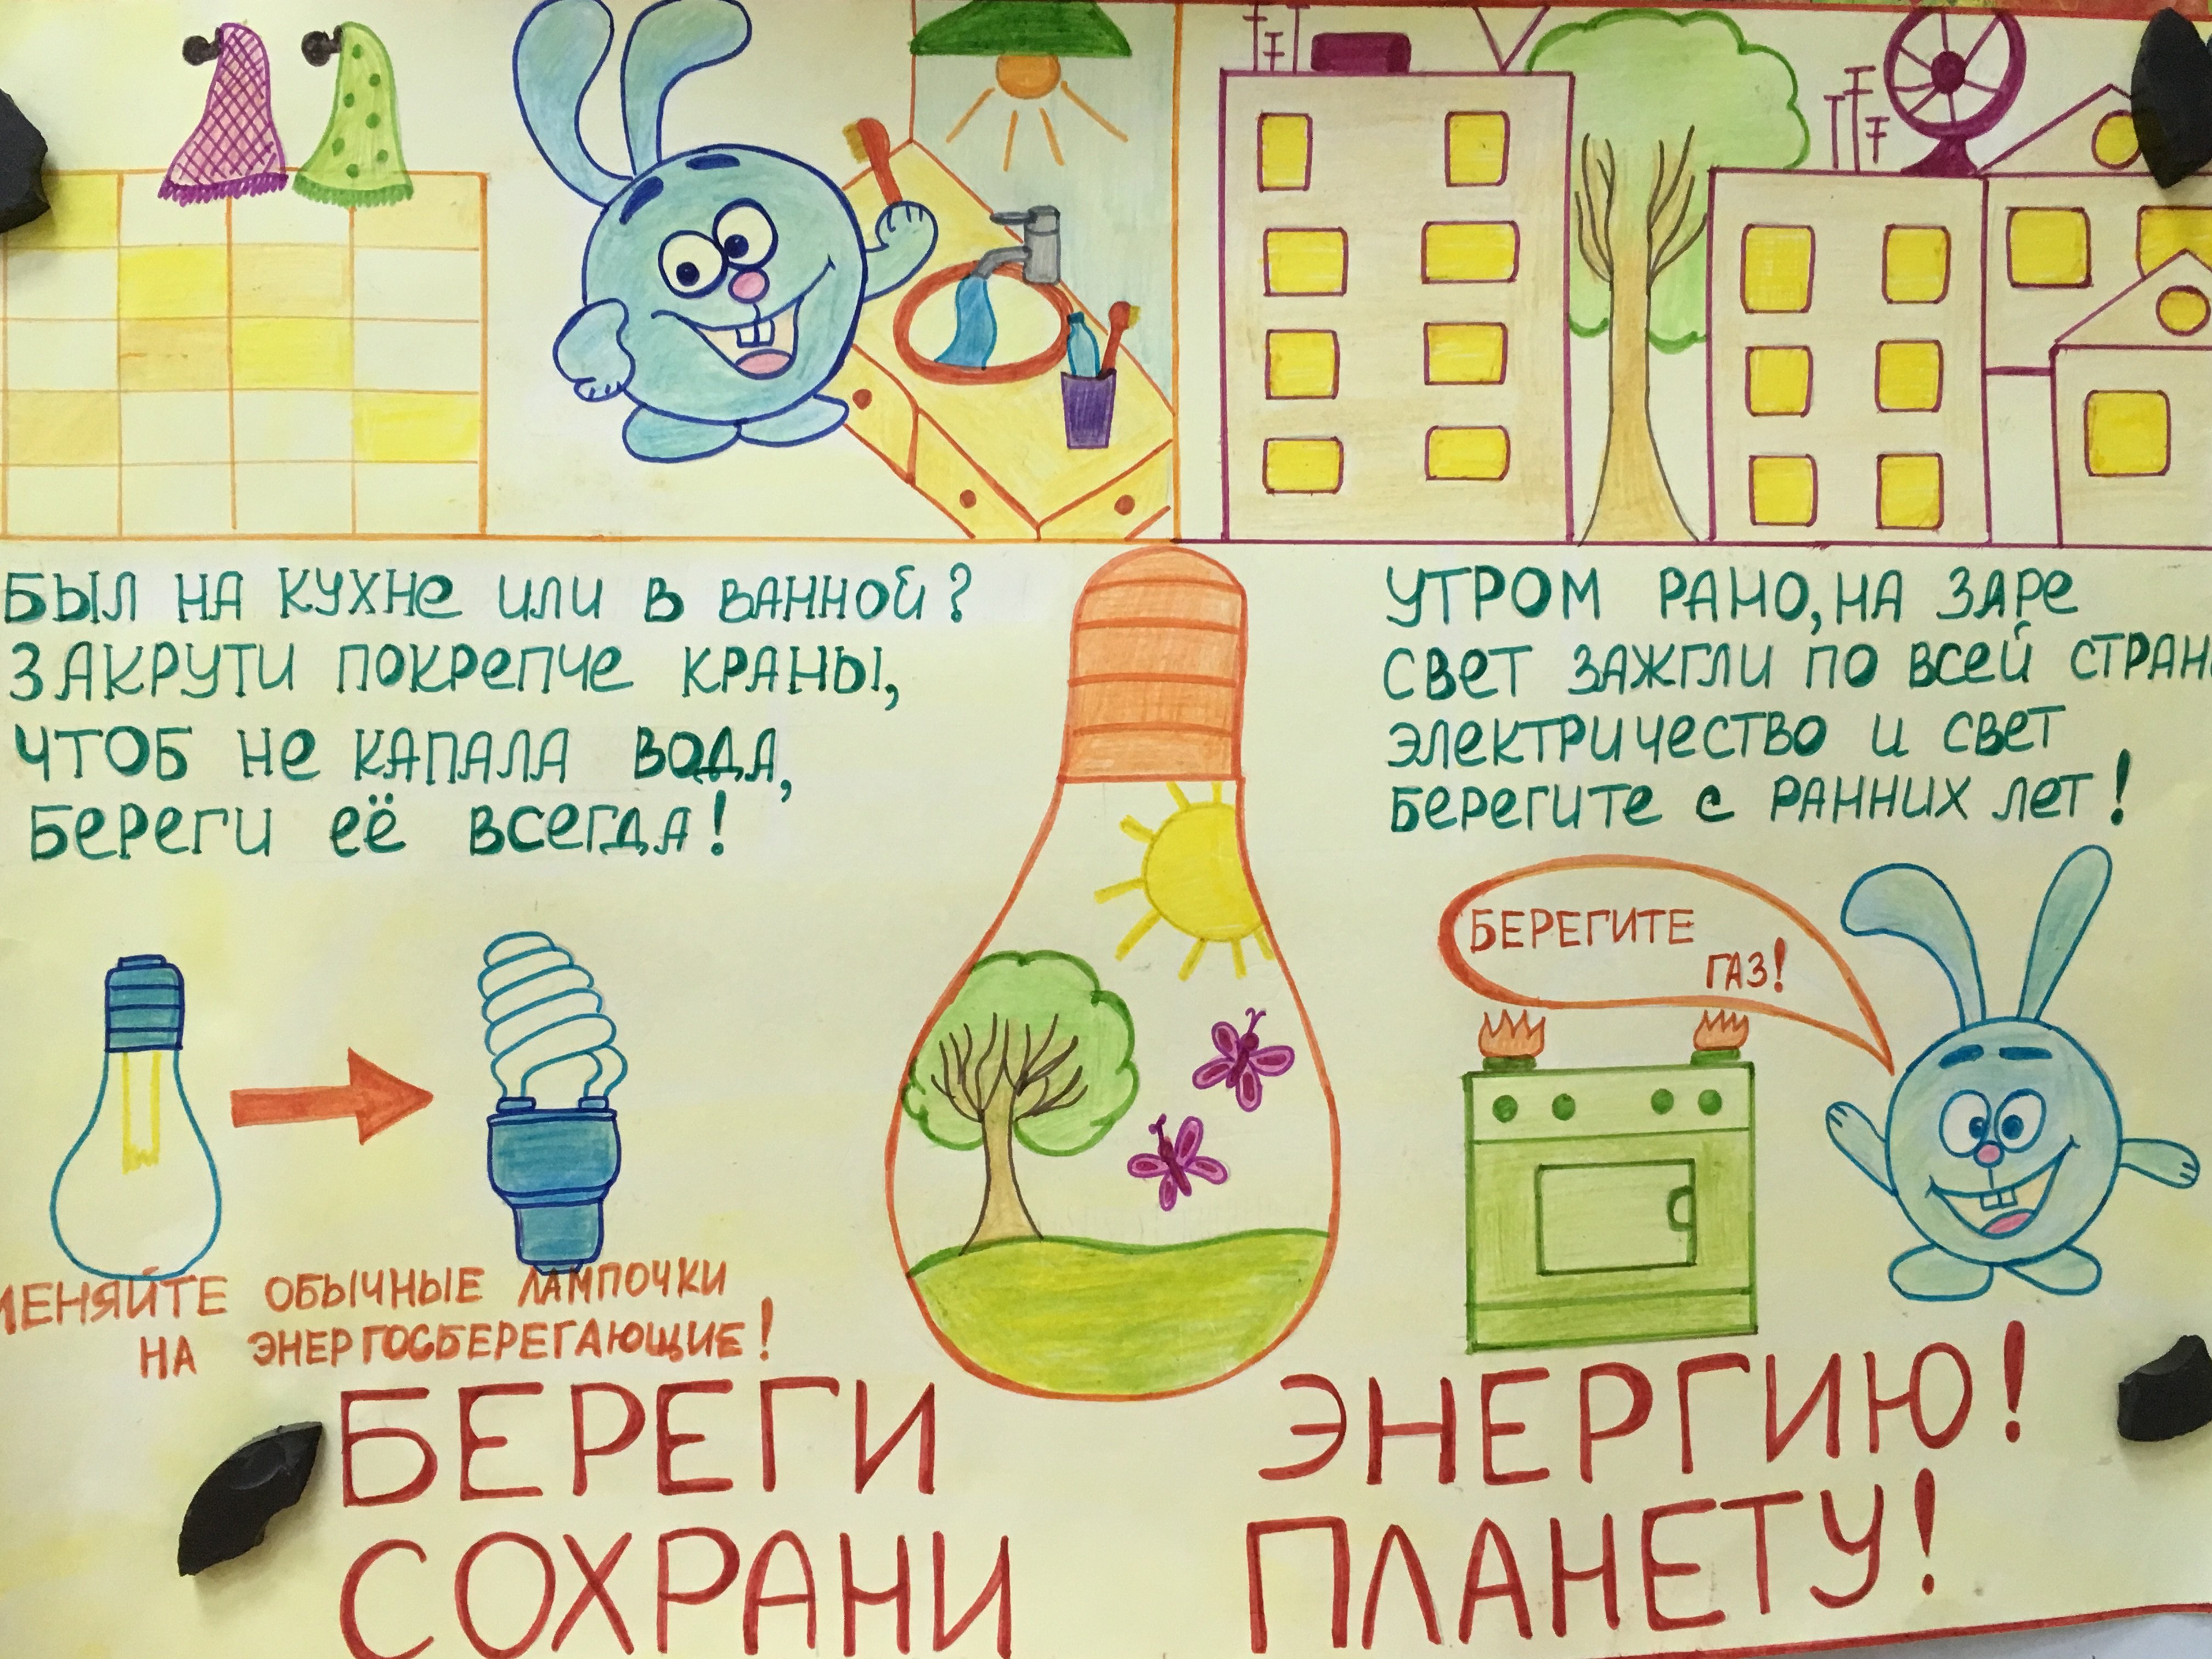 Был на кухне или в ванной?
Закрути покрепче краны,
чтоб не капала вода,
береги её всегда!
Утром рано, на заре
свет зажгли по всей стран
электричество и свет
берегите с ранних лет!
БЕРЕГИТЕ
ГАЗ!
МЕНЯЙТЕ ОБЫЧНЫЕ ЛАМПОЧКИ
НА ЭНЕРГОСБЕРЕГАЮЩИЕ!
БЕРЕГИ ЭНЕРГИЮ!
СОХРАНИ ПЛАНЕТУ!